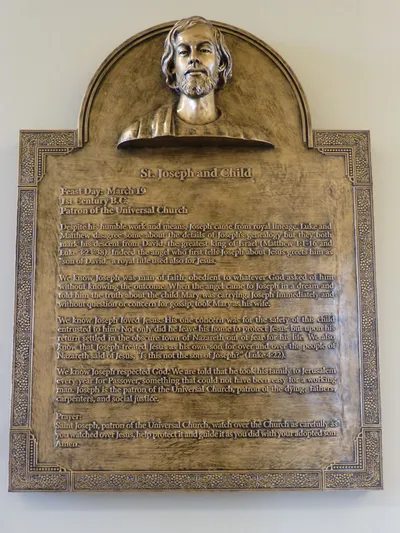 St. Joseph and Child
Feast Day: March 19
1st Century B.C.
Patron of the Universal Church
Despite his humble work and means, Joseph came from royal lineage. Luke and
Matthew disagree some about the details of Joseph's genealogy but they both
mark his descent from David, the greatest king of Israel (Matthew 1:1-16 and
Luke 3:23-38). Indeed the angel who first tells Joseph about Jesus greets him as
"son of David," a royal title used also for Jesus.
We know Joseph was man of faith, obedient to whatever God asked of him
without knowing the outcome. When the angel came to Joseph in a dream and
told him the truth about the child Mary was carrying, Joseph immediately and
without question or concern for gossip, took Mary as his wife.
We know Joseph loved Jesus. His one concern was for the safety of this child
entrusted to him. Not only did he leave his home to protect Jesus, but upon his
return settled in the obscure town of Nazareth out of fear for his life. We also
know that Joseph treated Jesus as his own son for over and over the people of
Nazareth said of Jesus, "Is this not the son of Joseph?" (Luke 4:22).
We know Joseph respected God. We are told that he took his family to Jerusalem
every year for Passover, something that could not have been easy for a working
man. Joseph is the patron of the Universal Church, patron of the dying, fathers,
carpenters, and social justice.
Prayer:
Saint Joseph, patron of the Universal Church, watch over the Church as carefully as
you watched over Jesus, help protect it and guide it as you did with your adopted son.
Amen.